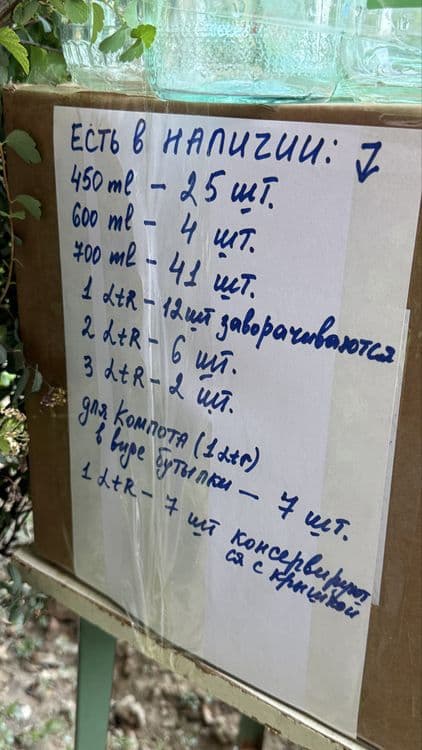 ЕСТЬ В НАЛИЧИИ: ↓
450 ml – 25 шт.
600 ml – 4 шт.
700 ml – 41 шт.
1 LtR – 12 шт заворачиваются
2 LtR – 6 шт.
3 LtR – 2 шт.
для компота (1 Ltr)
в виде бутылки – 7 шт.
1 LtR – 7 шт консервируют
ся с крышкой